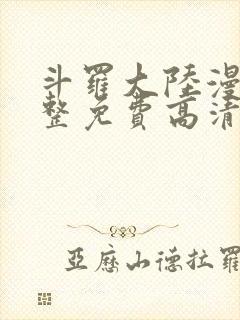 斗羅大陸漫
整免費高清
亞歷山德拉羅